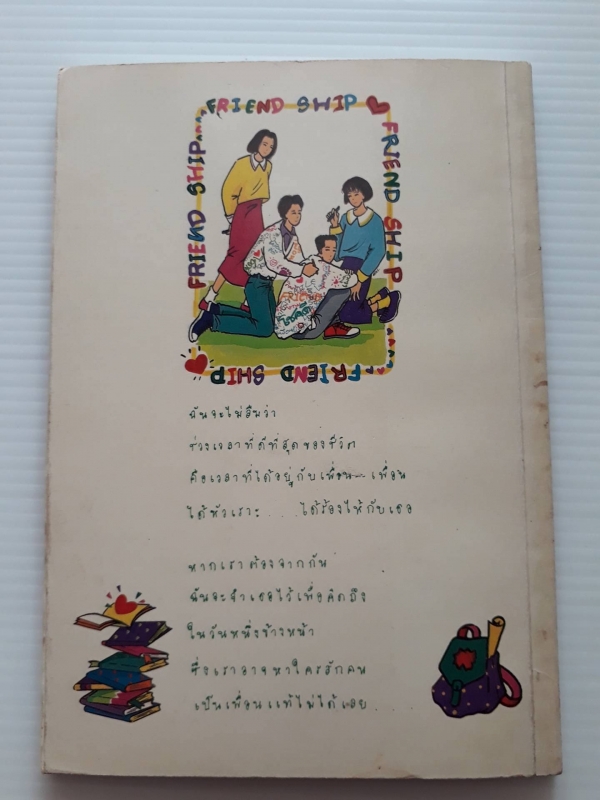 FRIEND SHIP
FRIEND SHIP
FRIEND SHIP
FRIEND SHIP
ฉันจะไม่ลืมว่า
ช่วงเวลาที่ดีที่สุดของชีวิต
คือเวลาที่ได้อยู่กับเพื่อน ~ เพื่อน
ได้หัวเราะ.....ได้ร้องไห้กับเธอ
หากเราต้องจากกัน
ฉันจะจำเธอไว้เพื่อคิดถึง
ในวันหนึ่งข้างหน้า
ซึ่งเราอาจหาใครสักคน
เป็นเพื่อนแท้ไม่ได้เลย....